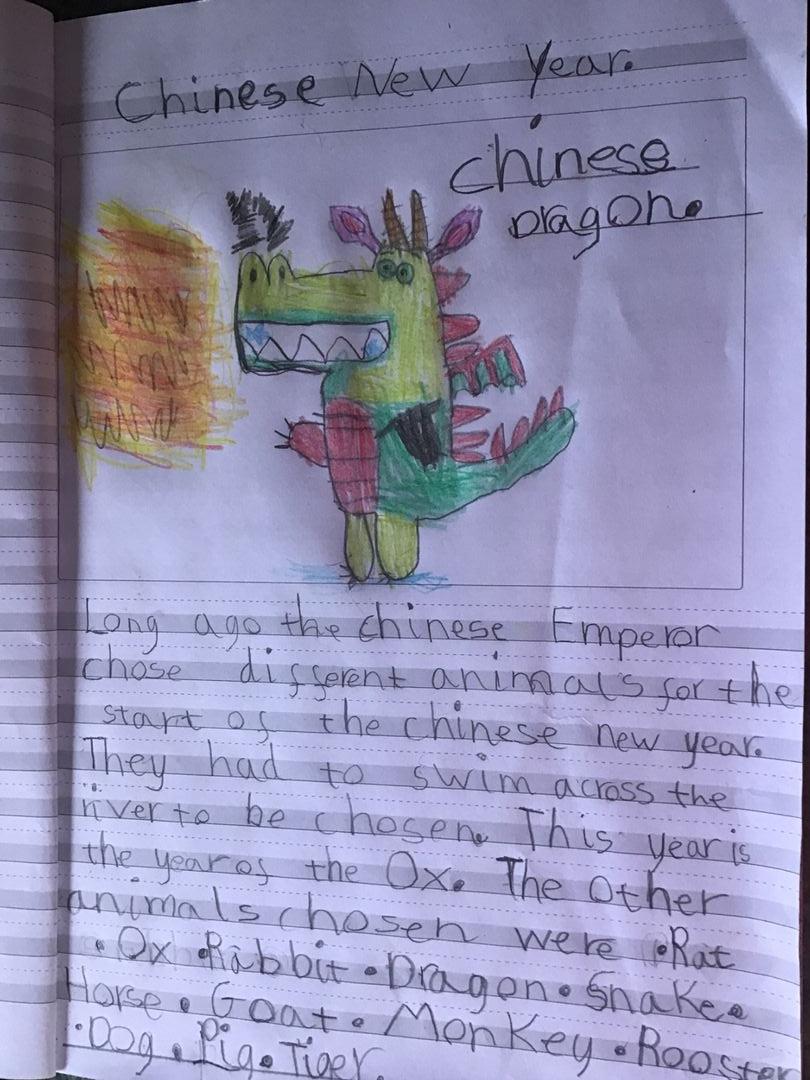 Chinese New Year.
Chinese
Dragon.
Long ago the chinese Emperor
chose different animals for the
start of the chinese new year.
They had to swim across the
river to be chosen. This year is
the year of the Ox. The Other
animals chosen were •Rat
•Ox •Rabbit •Dragon •Snake•
Horse • Goat • Monkey • Rooster
•Dog • Pig • Tiger.